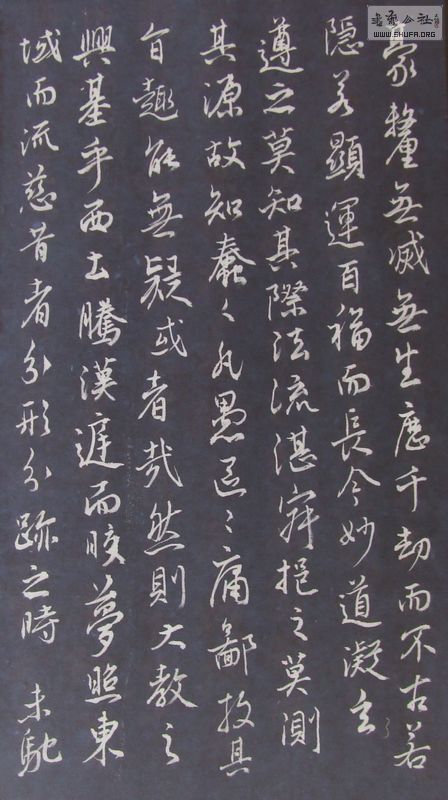 豪釐無滅無生歷千劫而不古若
隱若顯運百福而長今妙道凝玄
遵之莫知其際法流湛寂挹之莫測
其源故知蠢〻凡愚區〻庸鄙投其
旨趣能無疑或者哉然則大教之
興基乎西土騰漢遑而晈夢照東
域而流慈昔者分形分跡之時未馳
書法公社
WWW.SHUFA.ORG